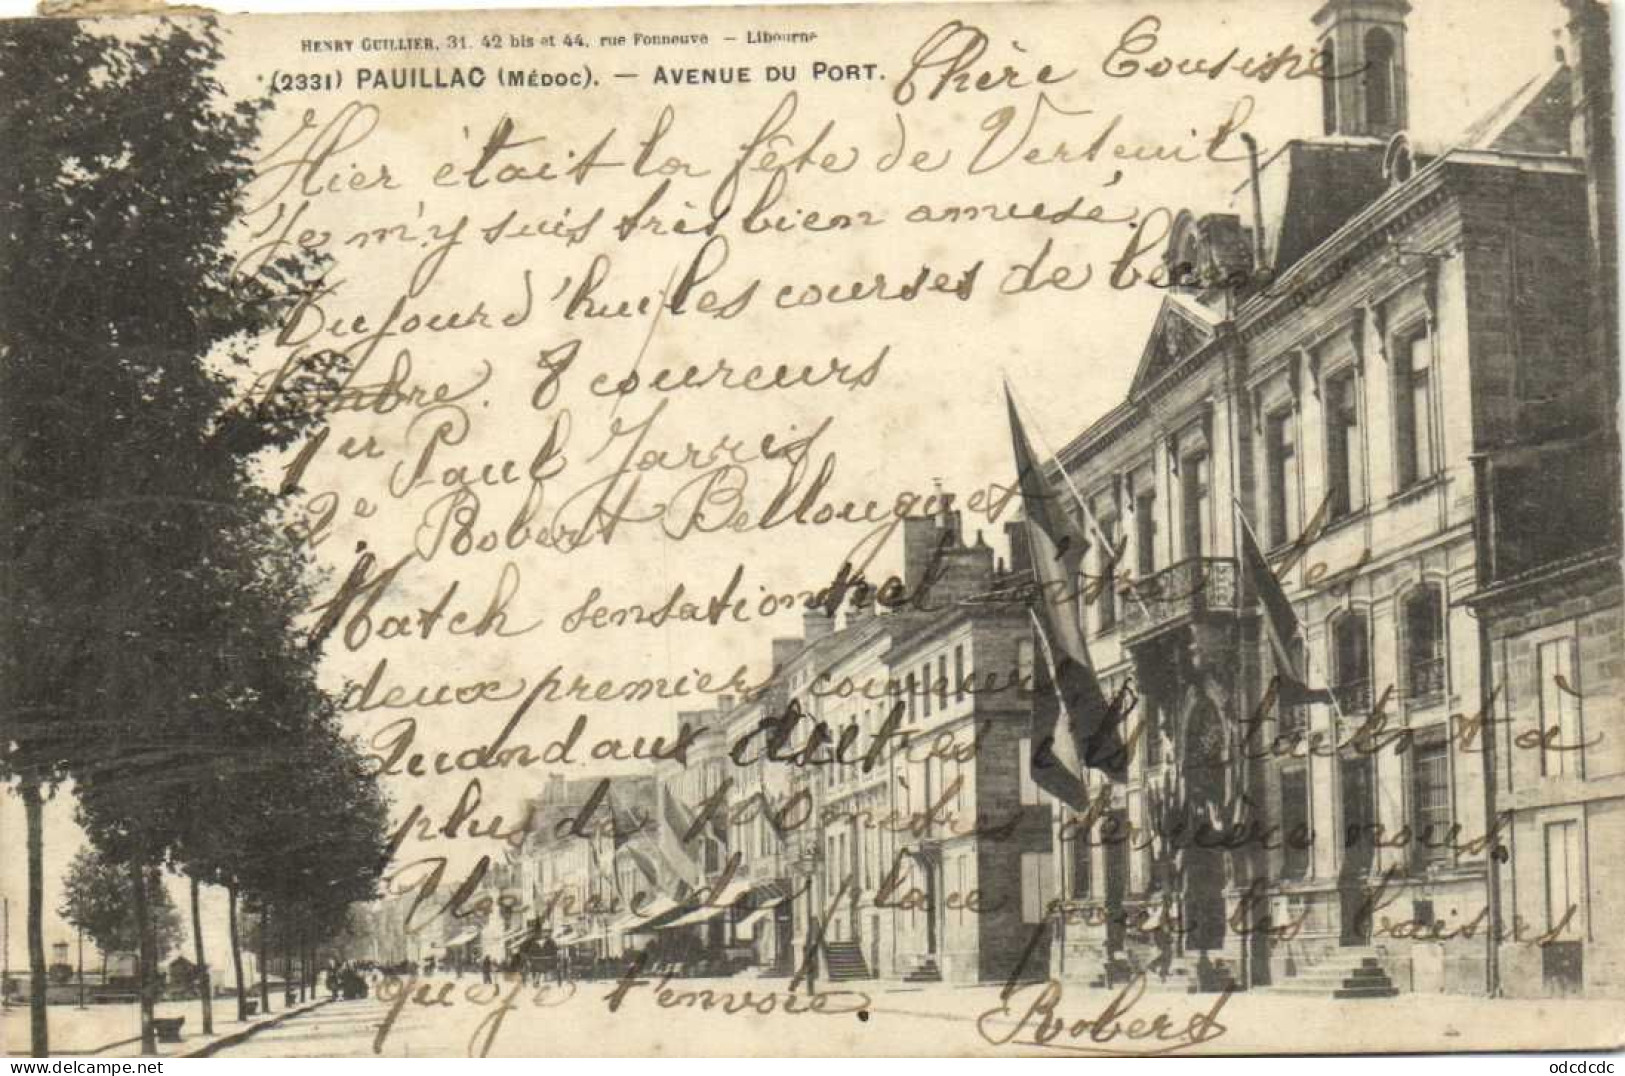 HENRY GUILLIER, 31. 42 bis et 44, rue Fonneuve – Libourne
(2331) PAUILLAC (MÉDOC). — AVENUE DU PORT.
Chère Cousine
Hier était la fête de Verteuil
Je m'y suis très bien amusé.
Aujourd'hui les courses de
8 coureurs
1er Paul Jarris
2e. Robert Bellouguet
Match sensationnel entre les
deux premiers coureurs
Quand aux autres ils étaient à
plus de 100 mètres derrière nous.
Un peu de place pour les baisers
que je t'envoie.
Robert
odcdcdc